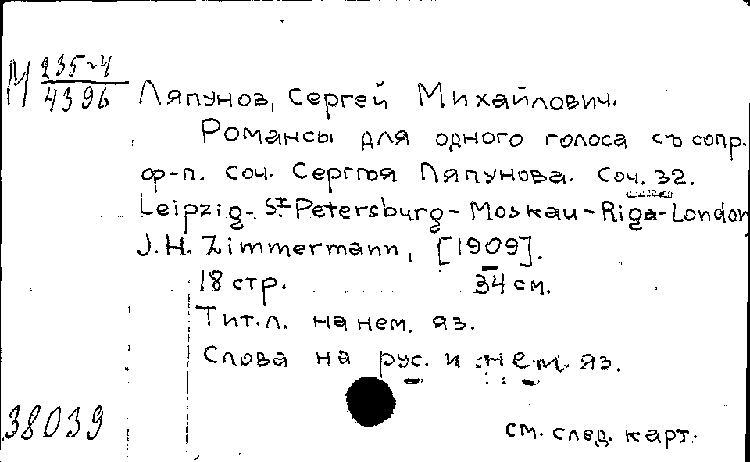 М 235-4
4396
Ляпунов, Сергей Михайлович.
Романсы для одного голоса съ сопр.
ф-п. соч. Сергѣя Ляпунова. Соч. 32.
Leipzig-St Petersburg-Moskau-Riga-London
J.H. Zimmermann, [1909].
18 стр. 34 см.
Тит.л. на нем. яз.
Слова на рус. и нем яз.
38039
см. след. карт.